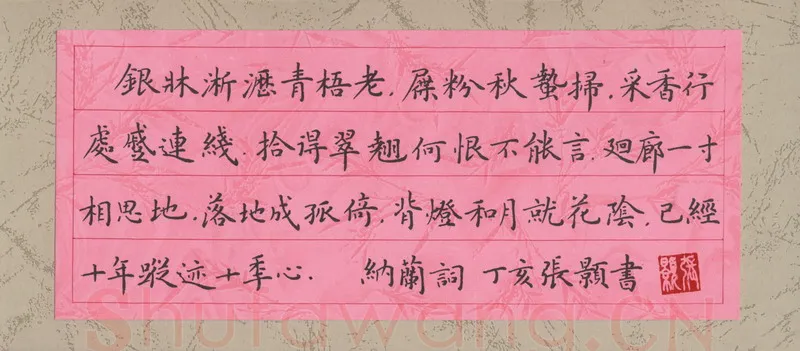 銀牀淅瀝青梧老.屧粉秋蛩掃.采香行
處蹙連綫.拾得翠翹何恨不能言.廻廊一寸
相思地.落地成孤倚.背燈和月就花陰.已經
十年蹤迹十季心.　納蘭詞 丁亥張顥書
張顥
Shufawang.CN